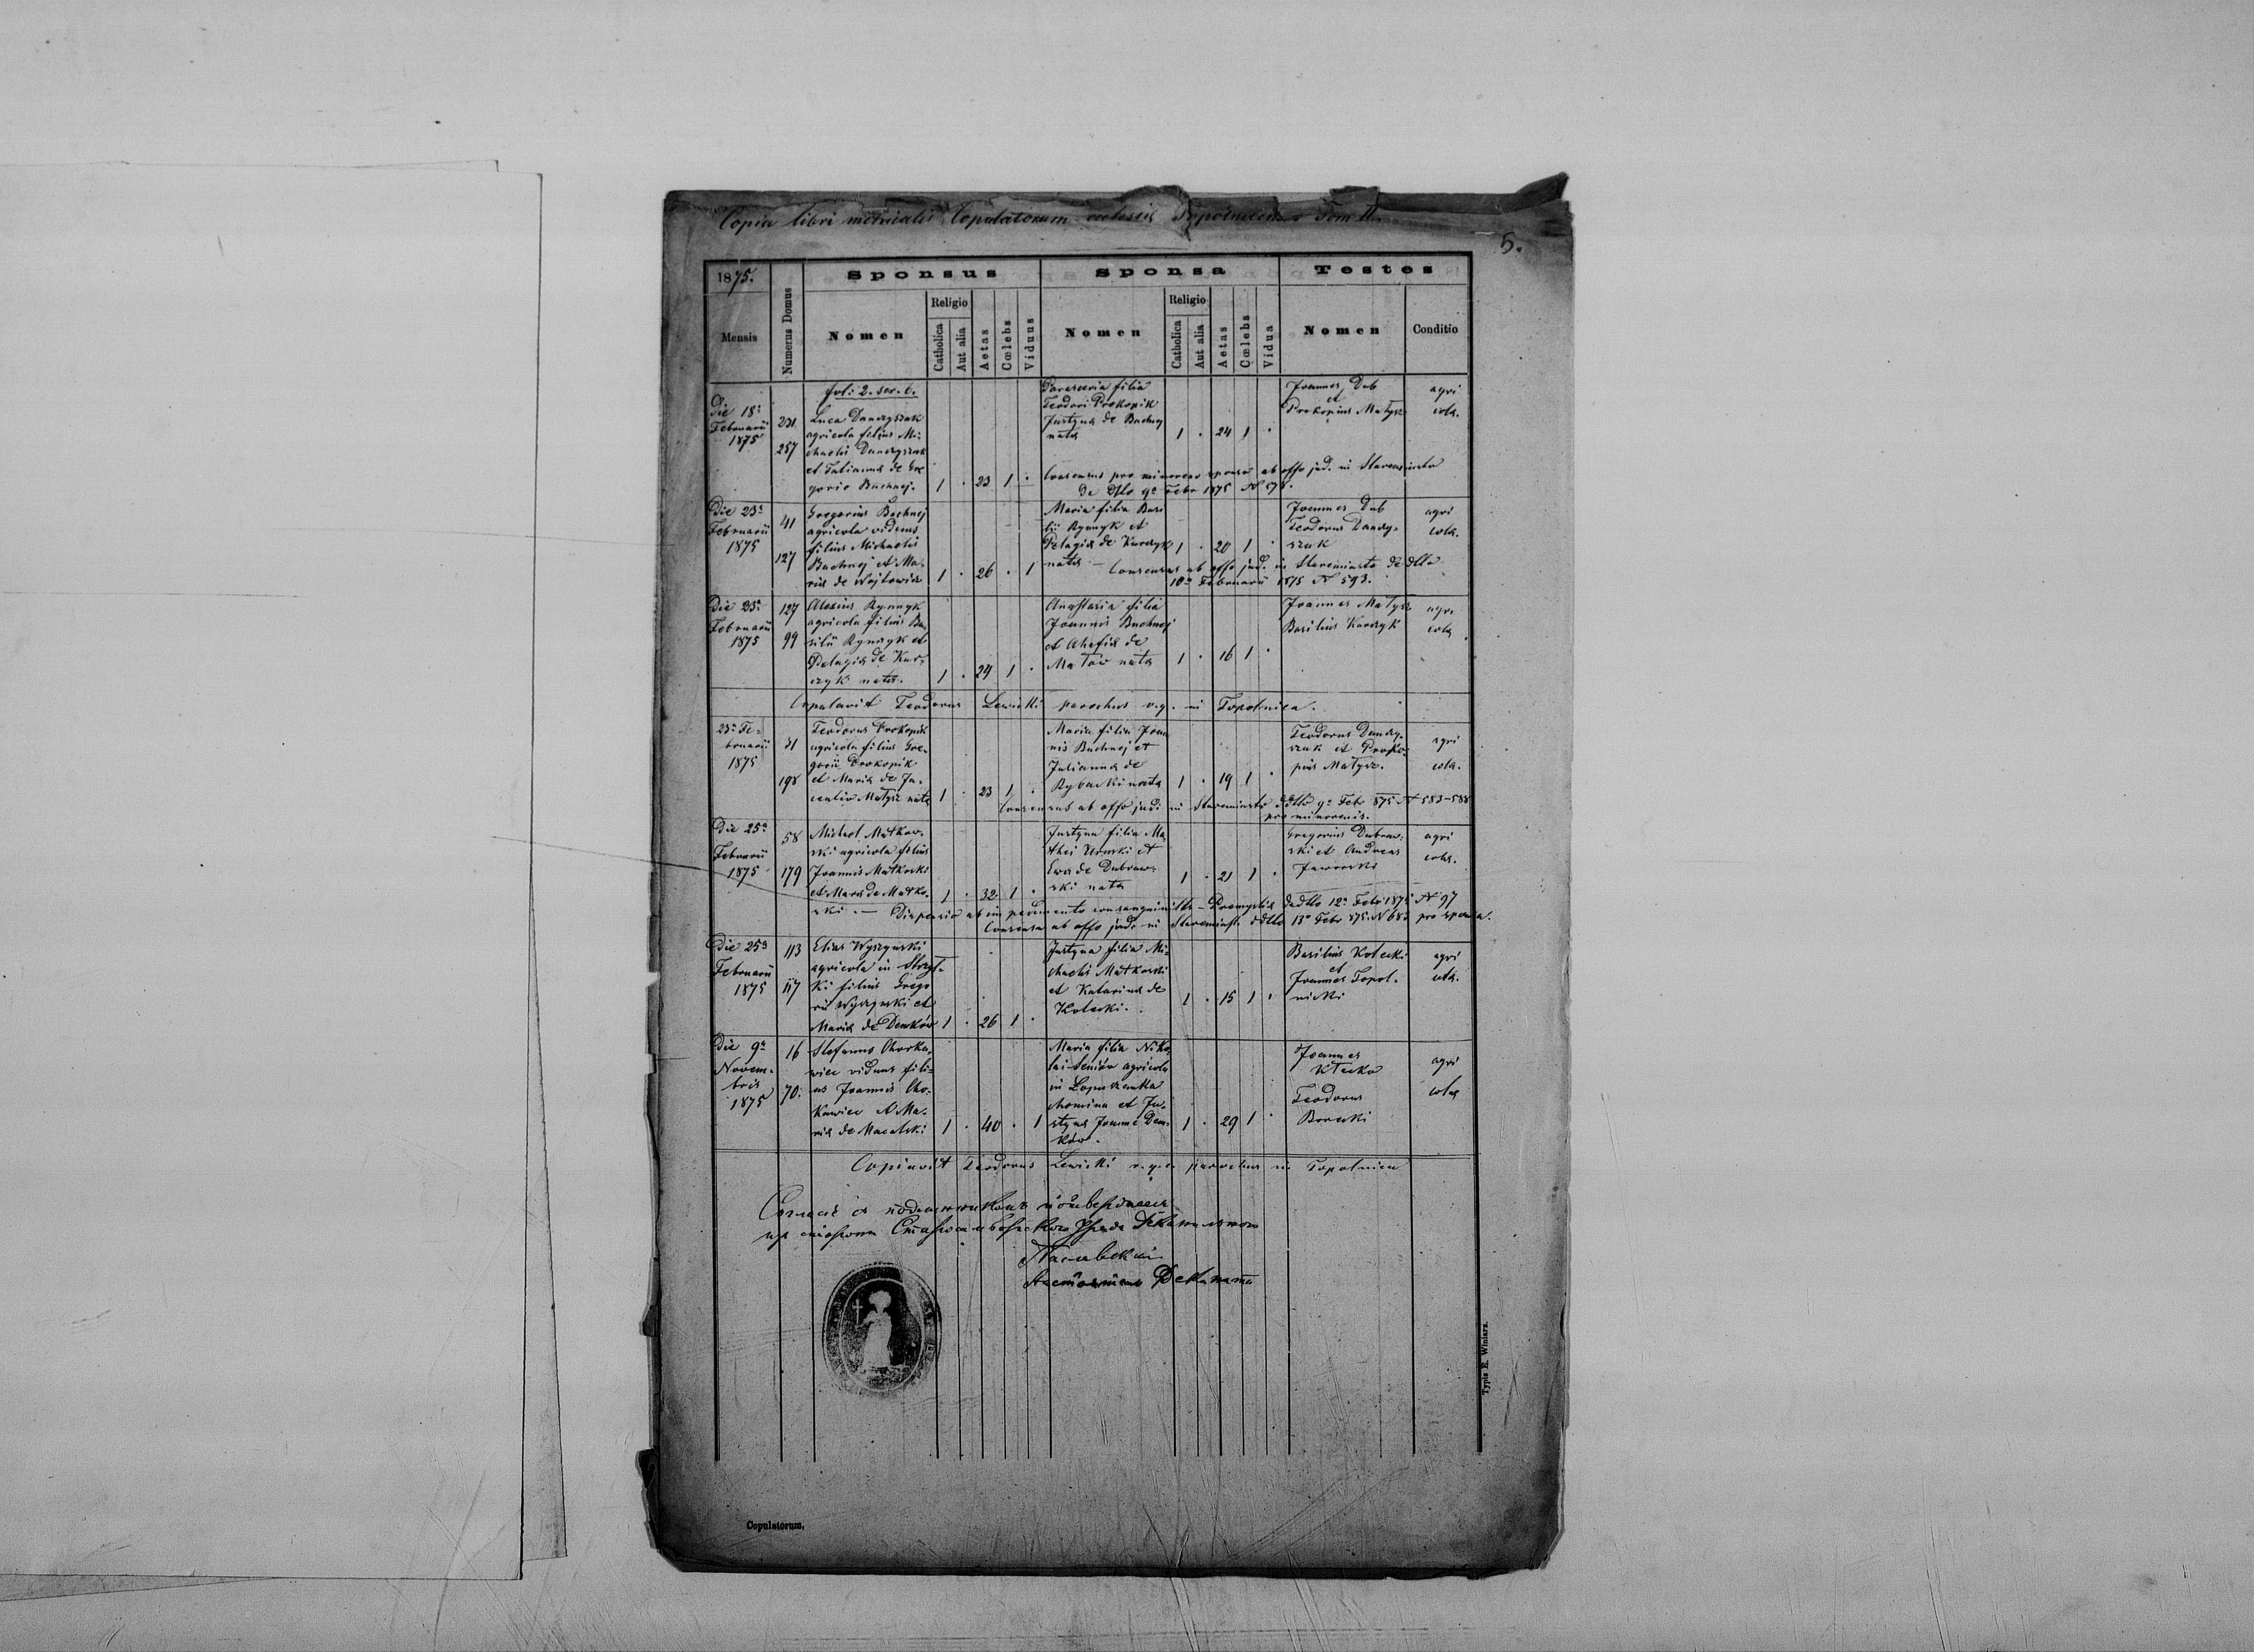 Copia libri metricalis Copulatorum ecclesiæ Tom II.
5.
1875.
Sponsus
Sponsa
Testes
Mensis
Numerus Domus
Nomen
Religio
Catholica
Aut alia
Aetas
Cœlebs
Viduus
Nomen
Religio
Catholica
Aut alia
Aetas
Cœlebs
Vidua
Nomen
Conditio
Die 18ª
Februarii
1875
231
257
fol: 2. ser. 6.
Luca Dandryszak
agricola filius Mi-
chaelis Dandryszak
et Tatianna de Gre
gorio Buchnej.
1 . 23 1 .
Parascevia filia
Teodori Prokopik
Justyna de Buchnej
nata
1 . 24 1 .
Joannes Dub
et
Prokopius Matysz
agri
cola.
Consensus pro minorenn sponso ab offo jud. in Staremiasto
de dtto 9ª Febr 1875 N 578.
Die 23ª
Februarii
1875
41
127
Gregorius Buchnej
agricola viduus
filius Michaelis
Buchnej et Ma-
ria de Wojtowicz
1 . 26 . 1
Maria filia Basi
lii Rynnyk et
Pelagia de Kurczyk
nata —
1 . 20 1 .
Joannes Dub
Teodorus Dandry-
szak
agri
cola.
Consensus ab offo jud. in Staremiasto de dtto
10ª Februarii 1875 N 593.
Die 23ª
Februarii
1875
127
99
Alexius Rynnyk
agricola filius Ba-
silii Rynnyk et
Pelagia de Kur-
czyk nata.
1 . 24 1 .
Anastasia filia
Joannis Buchnej
et Ahafia de
Matow nata
1 . 16 1 .
Joannes Matysz
Basilius Kurczyk
agri
cola
Copulavit Teodorus Lewicki parochus r.g. in Topolnica.
23ª Fe-
bruarii
1875
31
198
Teodorus Prokopik
agricola filius Gre-
gorii Prokopik
et Maria de Ja-
centio Matysz nata
1 . 23 1 .
Maria filia Joan
nis Buchnej et
Julianna de
Rybacki nata
1 . 19 1 .
Teodorus Dandry-
szak et Proko-
pius Matysz.
agri
cola.
Consensus ab offo jud. in Staremiasto ddtto 9ª Febr 875 N 583-588
pro minorenis.
Die 25ª
Februarii
1875
58
179
Michael Matkow-
ski agricola filius
Joannis Matkoski
et Maria de Matko-
ski. —
1 . 32 1 .
Justyna filia Ma
thei Urinski et
Ewa de Dubraw-
ski nata
1 . 21 1 .
Gregorius Dubraw-
ski et Andreas
Jaworski
agri
cola.
Dispensio ab impedimento consanguinitts – Premyslia dedtto 12ª Febr 1875 N 97
Consensu ab offo jud. in Staremiast. ddtto 13ª Febr 875. N 683 pro sponsa.
Die 25ª
Februarii
1875
113
117
Elias Wyszynski
agricola in Strzyl-
ki filius Grego
rii Wyszynski et
Maria de Demków
1 . 26 1 .
Justyna filia Mi-
chaelis Matkoski
et Katarina de
Kolecki.
1 . 15 1 .
Basilius Kolecki
et
Joannes Topol-
nicki
agri
cola.
Die 9ª
Novem-
bris
1875
16
70.
Stefanus Chorka-
wiec viduus fili-
us Joannis Cho-
kawiec et Ma-
ria de Macalski
1 . 40 . 1
Maria filia Niko-
lai Seniów agricola
in Lopuszanka
chomina et Ju-
styna Joanne Dem-
ków.
1 . 29 1 .
Joannes
Klecko
Teodorus
Borecki
agri
cola
Copiavit Teodorus Lewicki r.g.c. parochus in Topolnica
Деканата
Typis E. Winiarz.
Copulatorum.